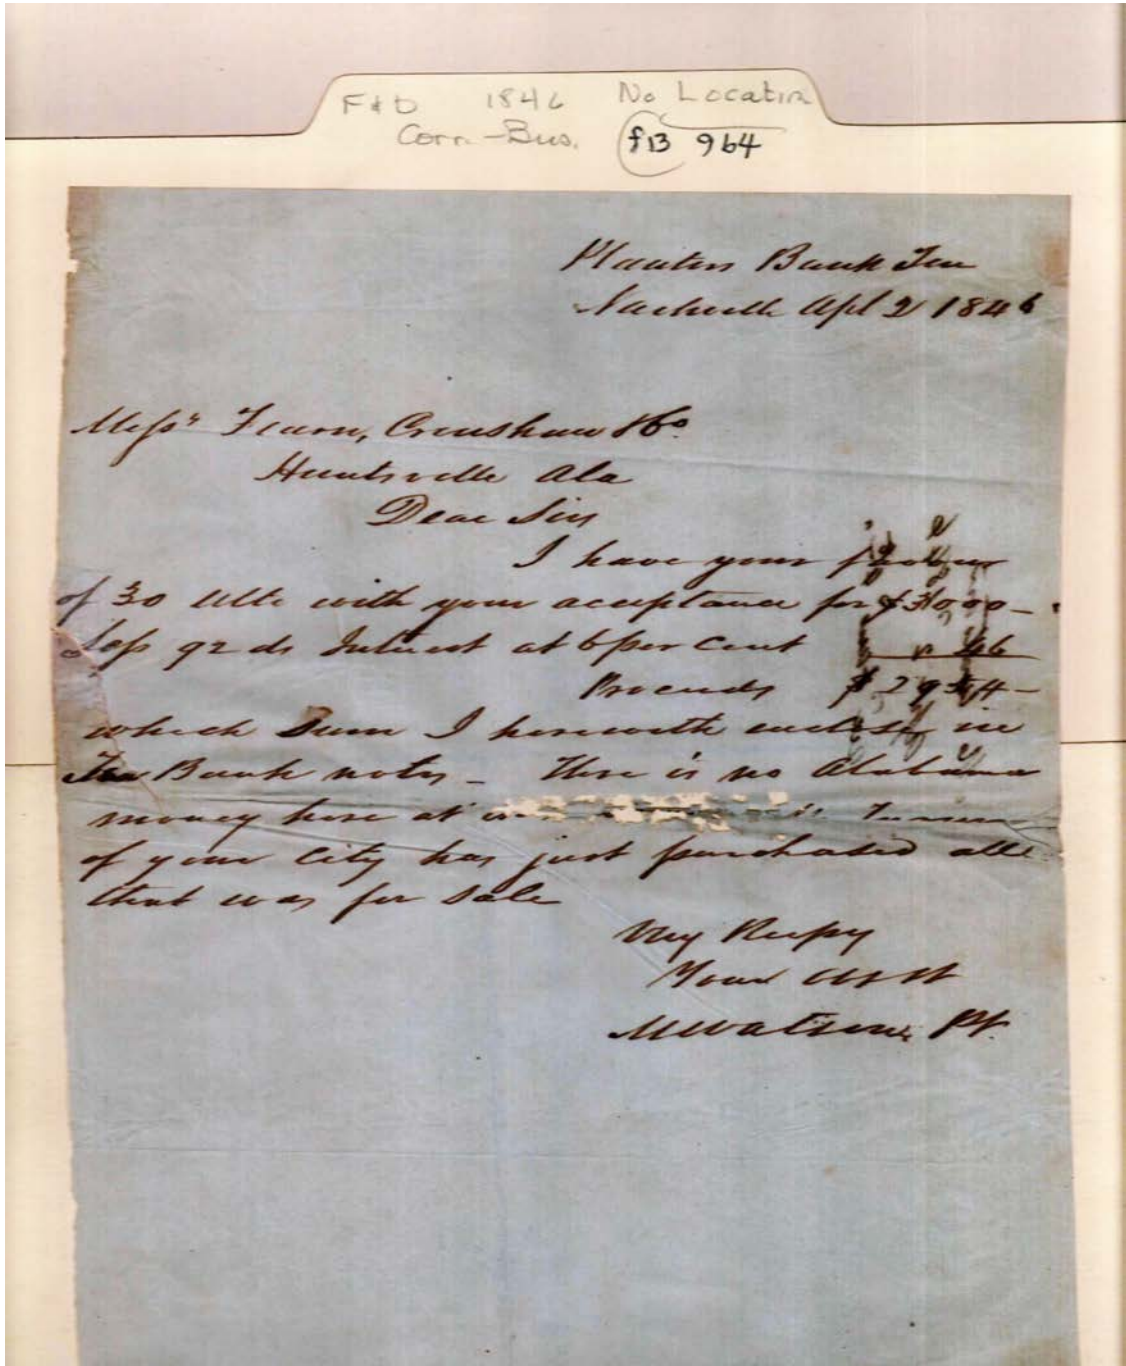 F & D 1846 No Location
Corr.-Bus. f13 964
Planters Bank Ten
Nashville Apl 2 1846
Messrs Fearn, Crenshaw & Co
Huntsville Ala
Dear Sirs
I have your favour
of 30 Ulto with your acceptance for $3000-
Less 92 ds Interest at 6 per Cent 46
Proceeds $2954-
which Sum I herewith enclose in
Ten Bank notes - There is no Alabama
money here at
of your City has just purchased all
that was for Sale
Very Respy
Your Obt St
M Watson, Pt.